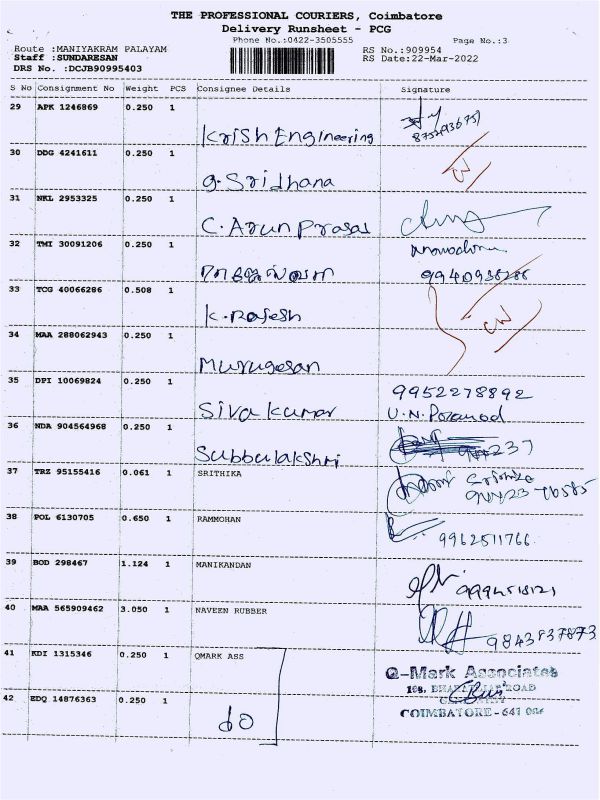 THE PROFESSIONAL COURIERS, Coimbatore
Delivery Runsheet - PCG
Phone No.:0422-3505555 Page No.:3
Route :MANIYAKRAM PALAYAM RS No.:909954
Staff :SUNDARESAN RS Date:22-Mar-2022
DRS No. :DCJB90995403
S No Consignment No Weight PCS Consignee Details Signature
29 APK 1246869 0.250 1
Krish Engineering
30 DDG 4241611 0.250 1
G. Sridhana
31 NKL 2953325 0.250 1
C. Arun Prasad
32 TMI 30091206 0.250 1
9940938286
33 TCG 40066286 0.508 1
K. Rajesh
34 MAA 288062943 0.250 1
Murugesan
35 DPI 10069824 0.250 1 9952278892
Siva kumar
36 NDA 904564968 0.250 1
Subbulakshmi
37 TRZ 95155416 0.061 1 SRITHIKA
38 POL 6130705 0.650 1 RAMMOHAN
9962511766
39 BOD 298467 1.124 1 MANIKANDAN
40 MAA 565909462 3.050 1 NAVEEN RUBBER
9843837873
41 KDI 1315346 0.250 1 QMARK ASS
Q-Mark Associates
42 EDQ 14876363 0.250 1
do
COIMBATORE - 641 006